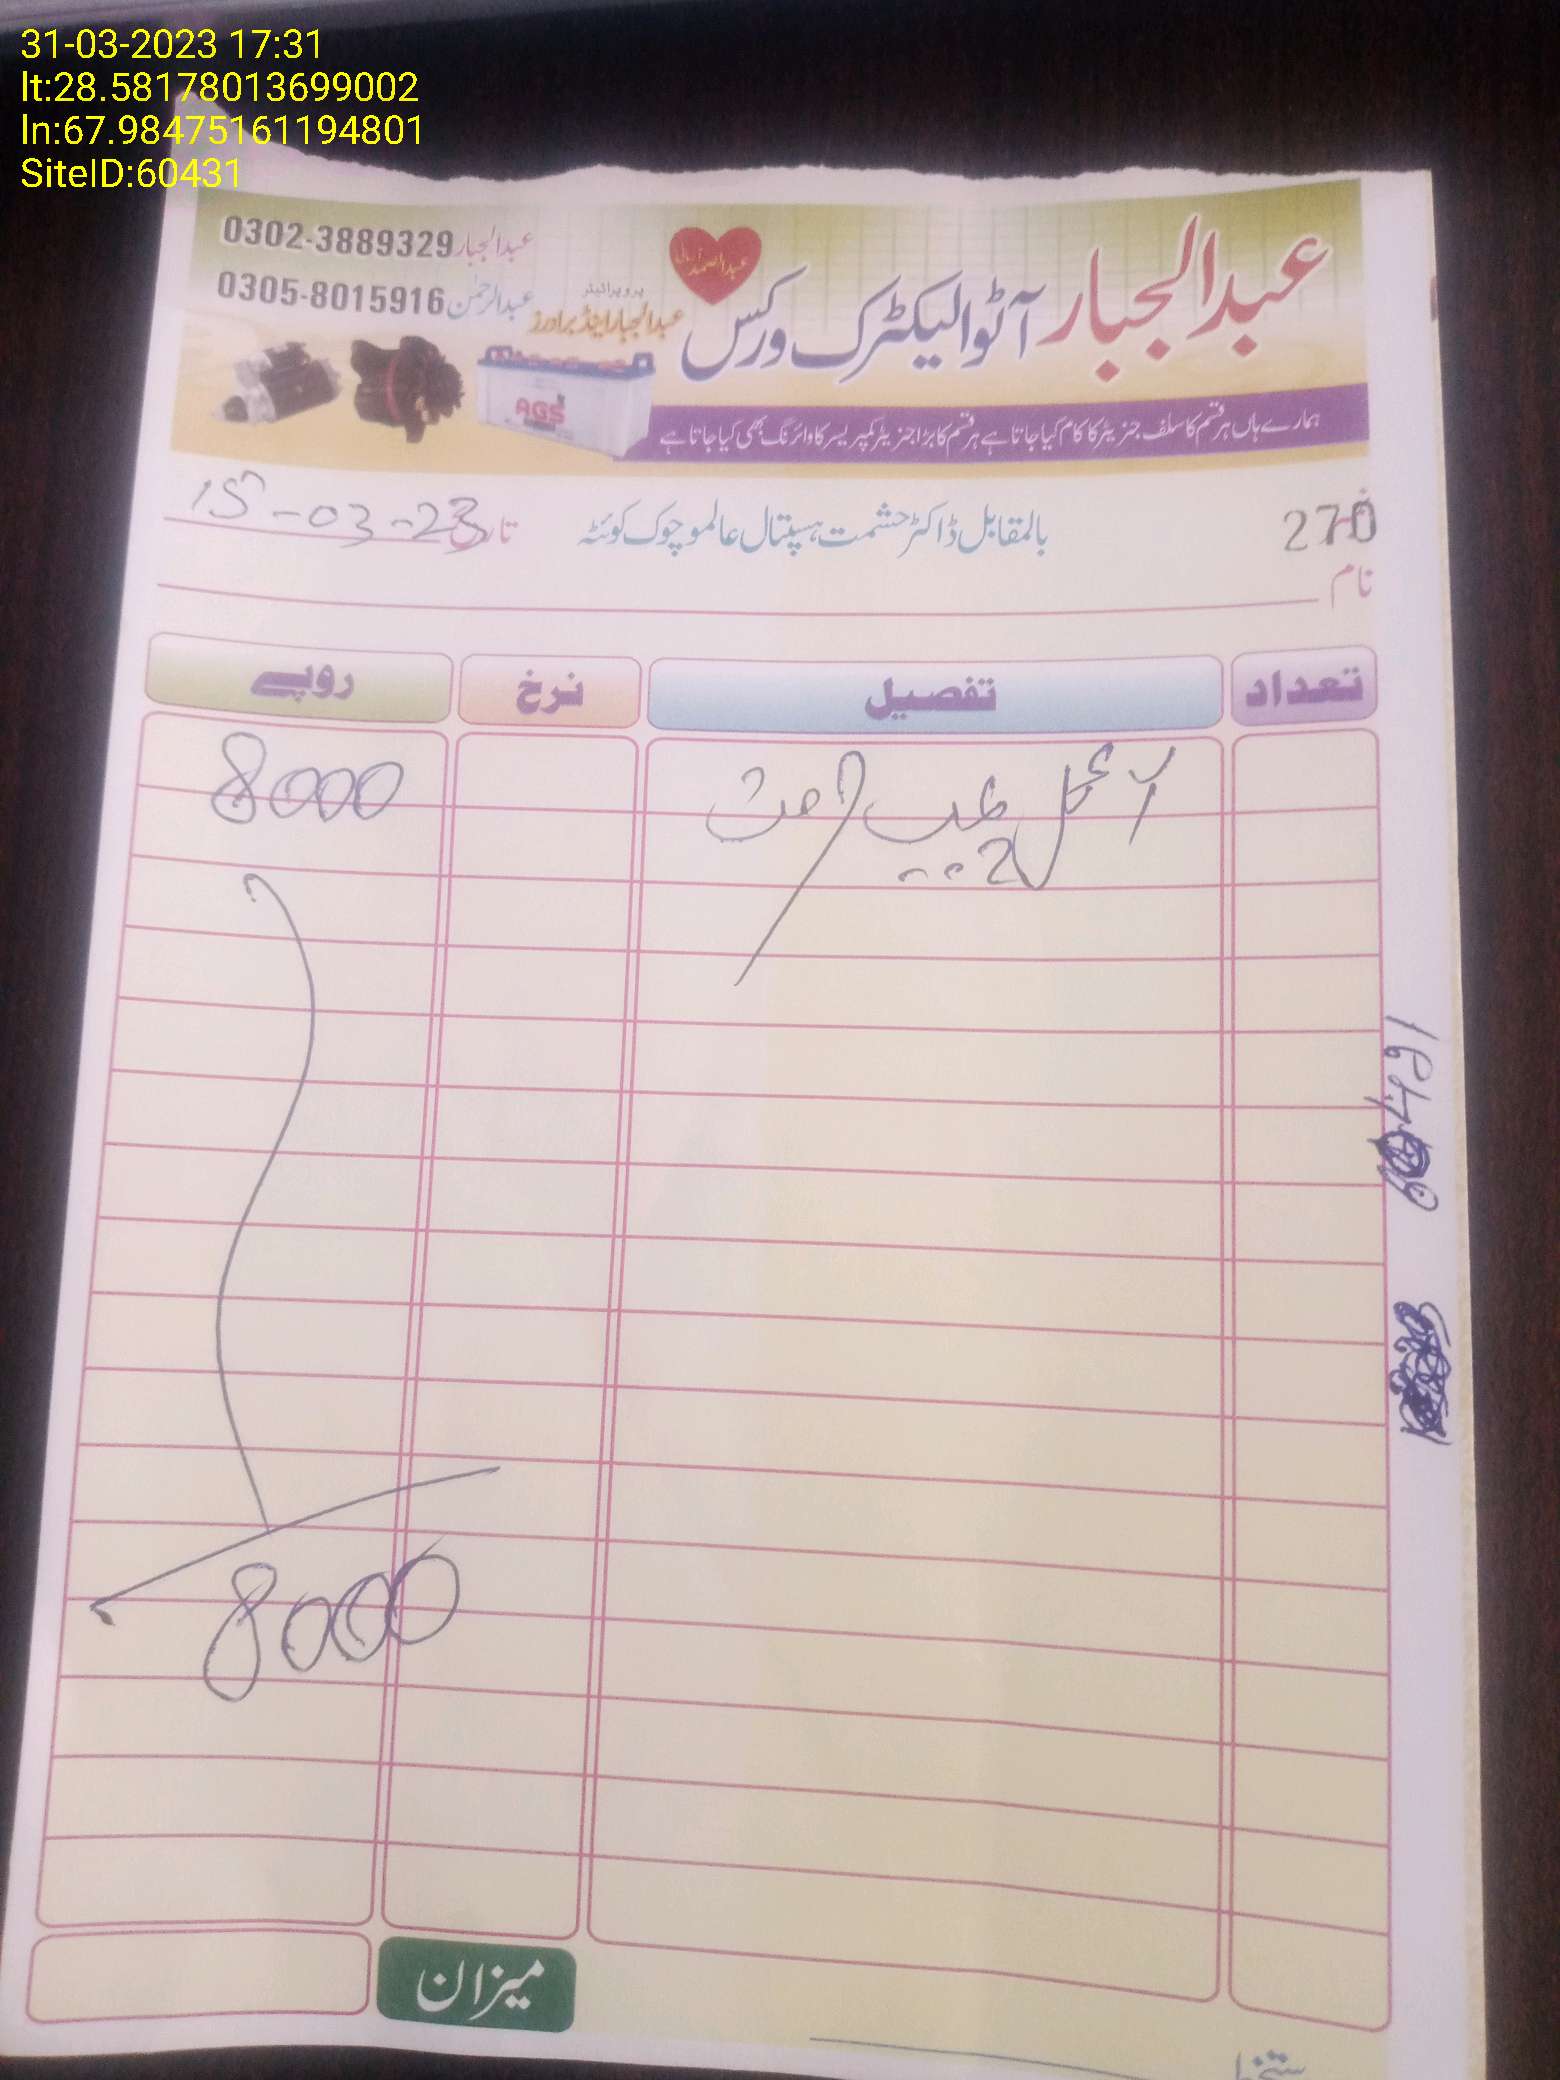 31-03-2023 17:31
lt:28.58178013699002
ln:67.98475161194801
SiteID:60431
عبدالجبار 0302-3889329
عبدالرحمٰن 0305-8015916
عبدالجبار آٹو الیکٹرک ورکس
پروپرائیٹر
عبدالجبار اینڈ برادرز
AGS
ہمارے ہاں ہر قسم کا سلف جنریٹر کا کام کیا جاتا ہے ہر قسم کا بڑا جنریٹر کمپریسر کا وائرنگ بھی کیا جاتا ہے
270 بالمقابل ڈاکٹر حشمت ہسپتال عالمو چوک کوئٹہ 15-03-23
نام
تعداد تفصیل نرخ روپے
8000
8000
میزان